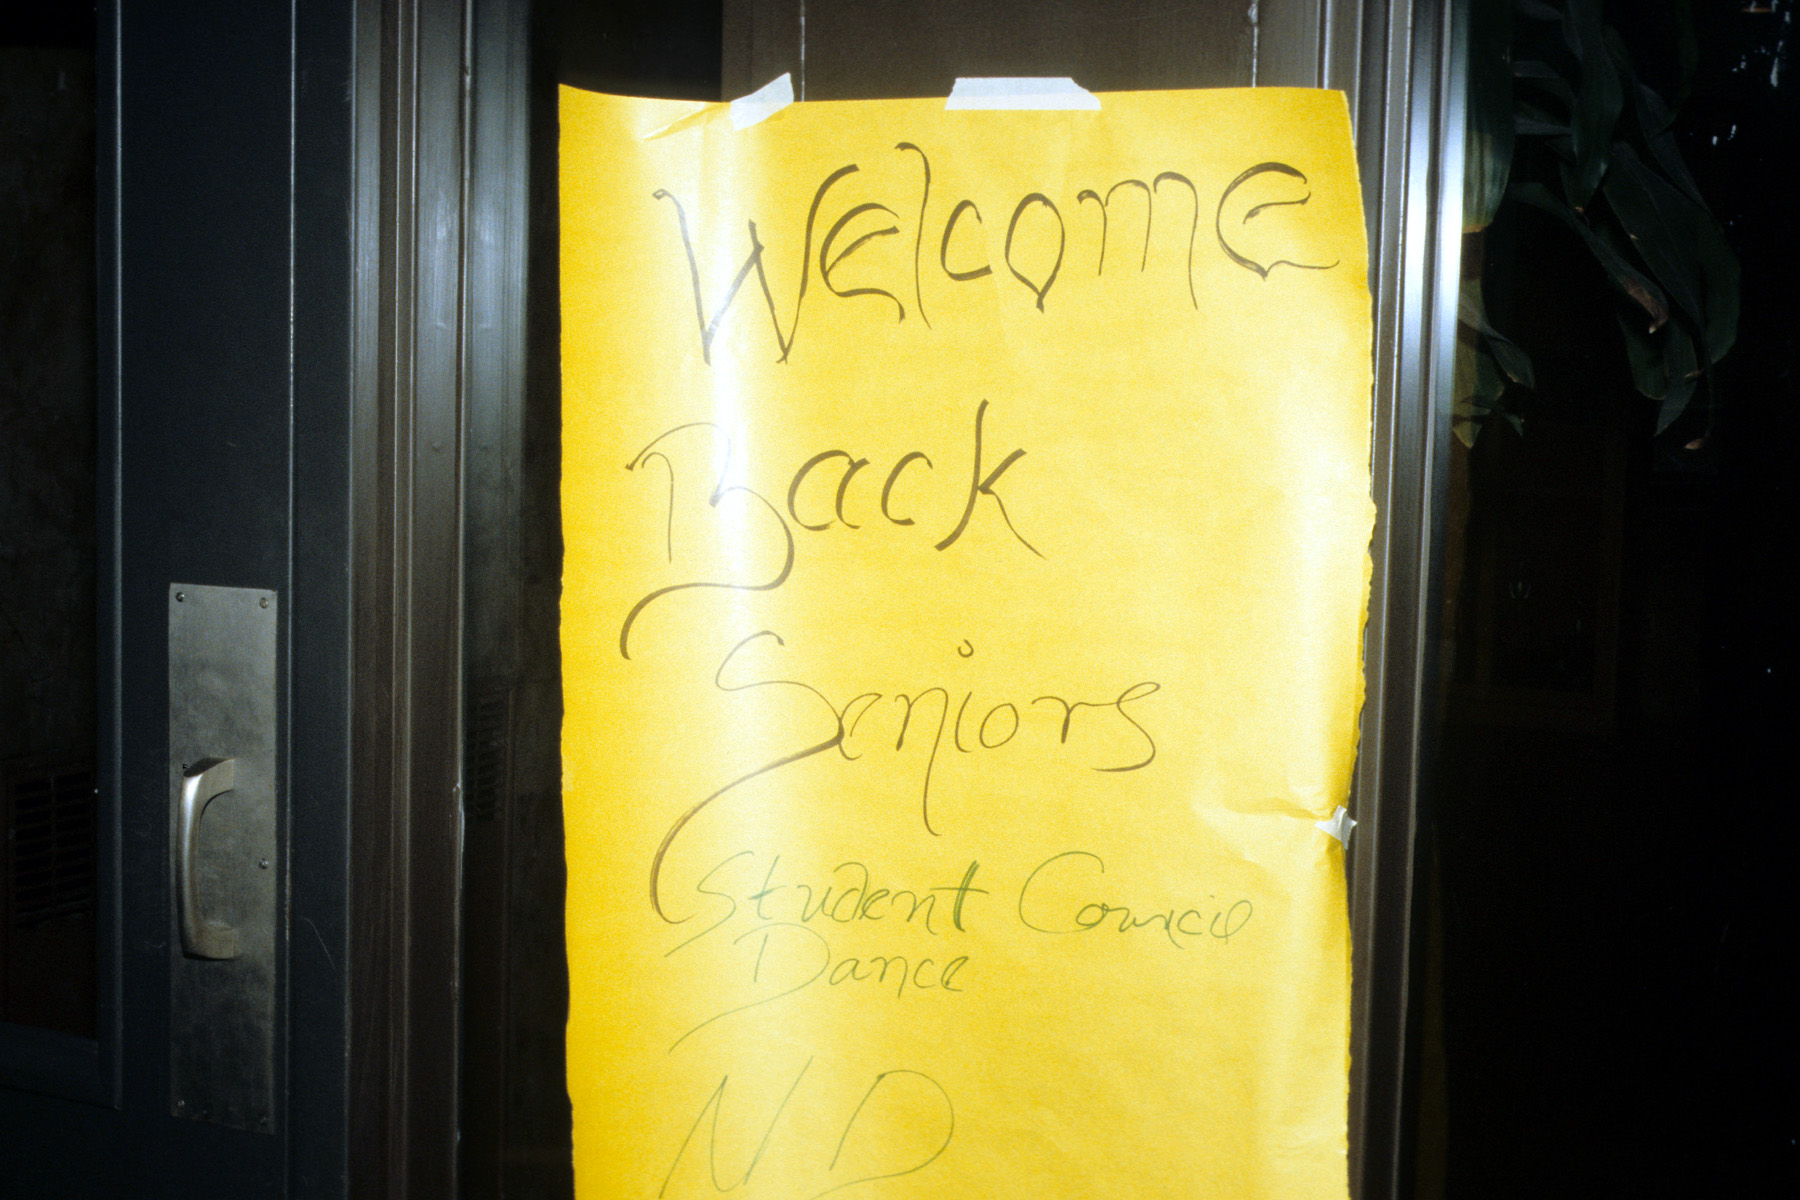 Welcome
Back
Seniors
Student Council
Dance
ND